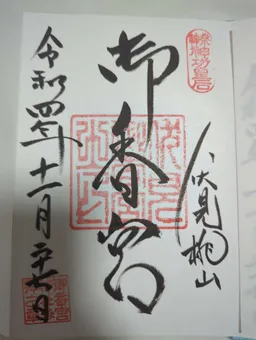 祭神 神功皇后
伏見桃山
御香宮
令和四年十一月 日